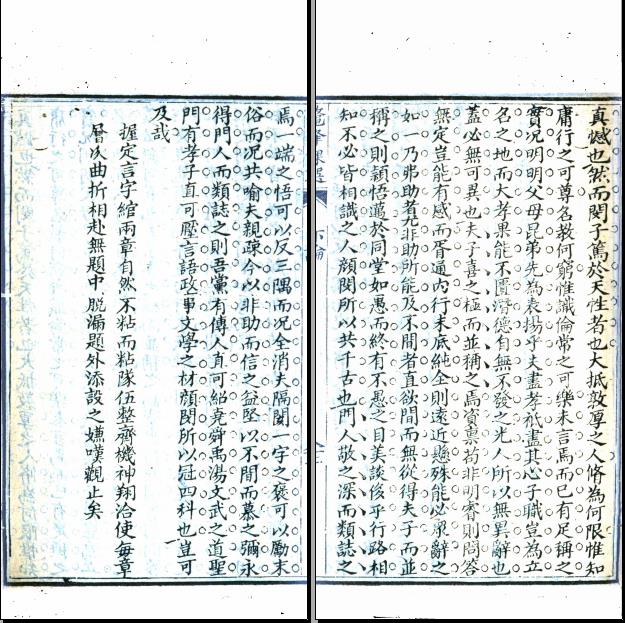 真憾也然而閔子篤於天性者也大抵敦厚之人脩為何限惟知
庸行之可尊名教何窮惟識倫常之可樂未言焉而已有足稱之
實况明明父母昆弟先為表揚乎夫盡孝祇盡其心子職豈為立
名之地而大孝果能不匱潛德自無不發之光人所以無異辭也
蓋必無可異也夫子喜之極而並稱之焉資稟苟非明睿則問答
無定豈能有感而胥通內行未底純全則遠近懸殊能必眾辭之
如一乃弗助者尤非助所能及不間者直欲間而無從得夫子而並
稱之則穎悟邁於同堂如愚而終有不愚之目美談俟乎行路相
知不必皆相識之人顏閔所以共千古也門人敬之深而類誌之
焉一端之悟可以反三隅而况全消夫隔閡一字之褒可以勵末
俗而况共喻夫親疎今以非助而信之益堅以不間而慕之彌永
得門人而類誌之則吾黨有傳人直可紹堯舜禹湯文武之道聖
門有孝子直可壓言語政事文學之材顏閔所以冠四科也豈可
及哉
握定言字綰兩章自然不粘而粘隊伍整齊機神翔洽使每章
層次曲折相赴無題中脫漏題外添設之嫌嘆觀止矣